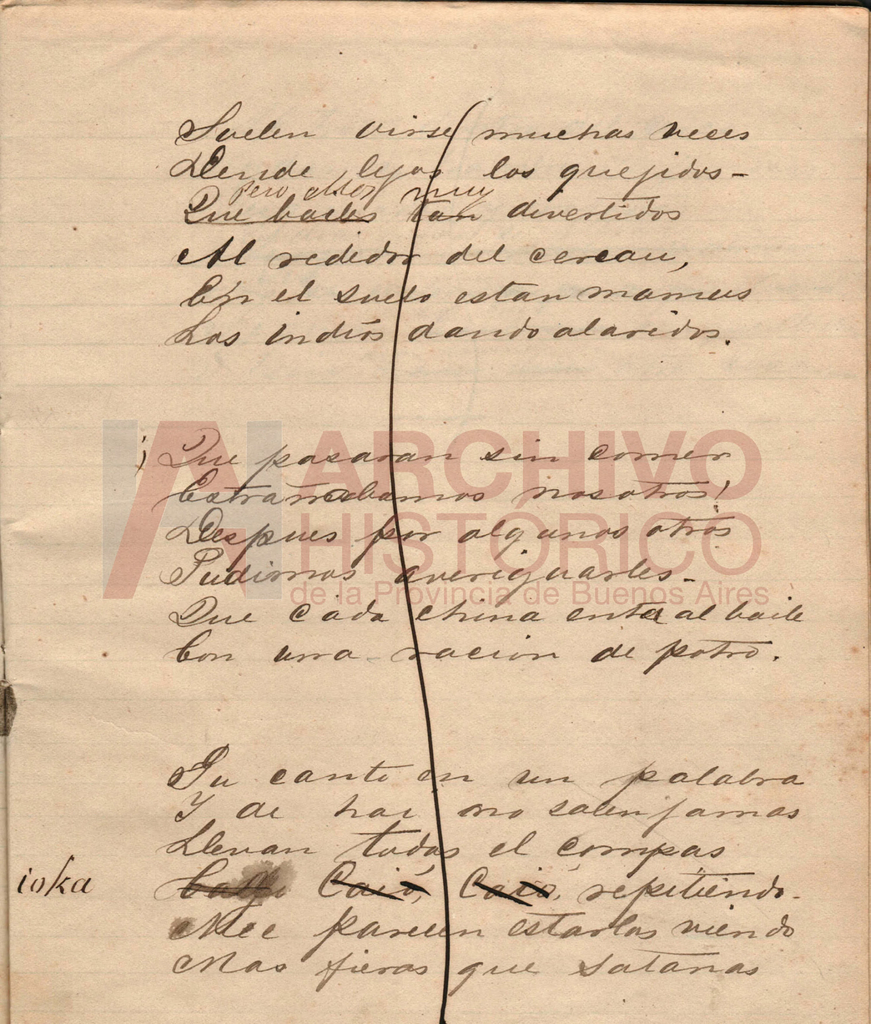 Suelen oirse muchas veces
Dende lejos los quejidos-
Pero ellos muy
Que bailes tan divertidos
Al rededor del cercau,
En el suelo estan mamaus
Los indios dando alaridos.
¡Que pasaran sin comer
Estrañabamos nosotros!
Despues por algunos otros
Pudiomos averiguarles-
Que cada china entra al baile
Con una racion de potro.
Su canto en un palabra
Y de hai no salen jamas
Llevan todas el compas
ioka Caió, Caió, repitiendo.
Me parecen estarlas viendo
Mas fieras que Satanas
ARCHIVO
HISTÓRICO
de la Provincia de Buenos Aires